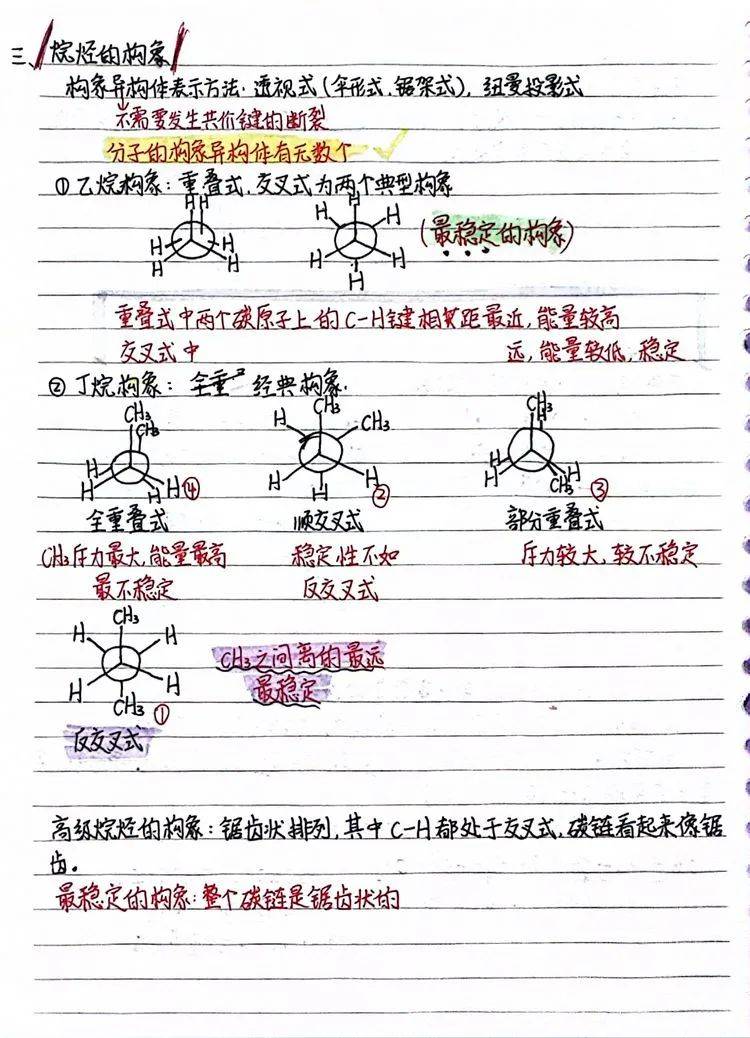 三、烷烃的构象
构象异构体表示方法:透视式(伞形式,锯架式),纽曼投影式
不需要发生共价键的断裂
分子的构象异构体有无数个
①乙烷构象:重叠式,交叉式为两个典型构象
H H
H H H H
H H H
H H H
(最稳定的构象)
重叠式中两个碳原子上的C-H键相距最近,能量较高
交叉式中 远,能量较低,稳定
②丁烷构象: 全重 经典构象.
CH₃
CH₃
H H H H ④
全重叠式
CH₃斥力最大,能量最高
最不稳定
CH₃
H CH₃
H H H ②
顺交叉式
稳定性不如
反交叉式
CH₃
H
H H H
CH₃ ③
部分重叠式
斥力较大,较不稳定
CH₃
H H
H H
CH₃ ①
反交叉式
CH₃之间离的最远
最稳定
高级烷烃的构象:锯齿状排列,其中C-H都处于交叉式,碳链看起来像锯
齿。
最稳定的构象:整个碳链是锯齿状的